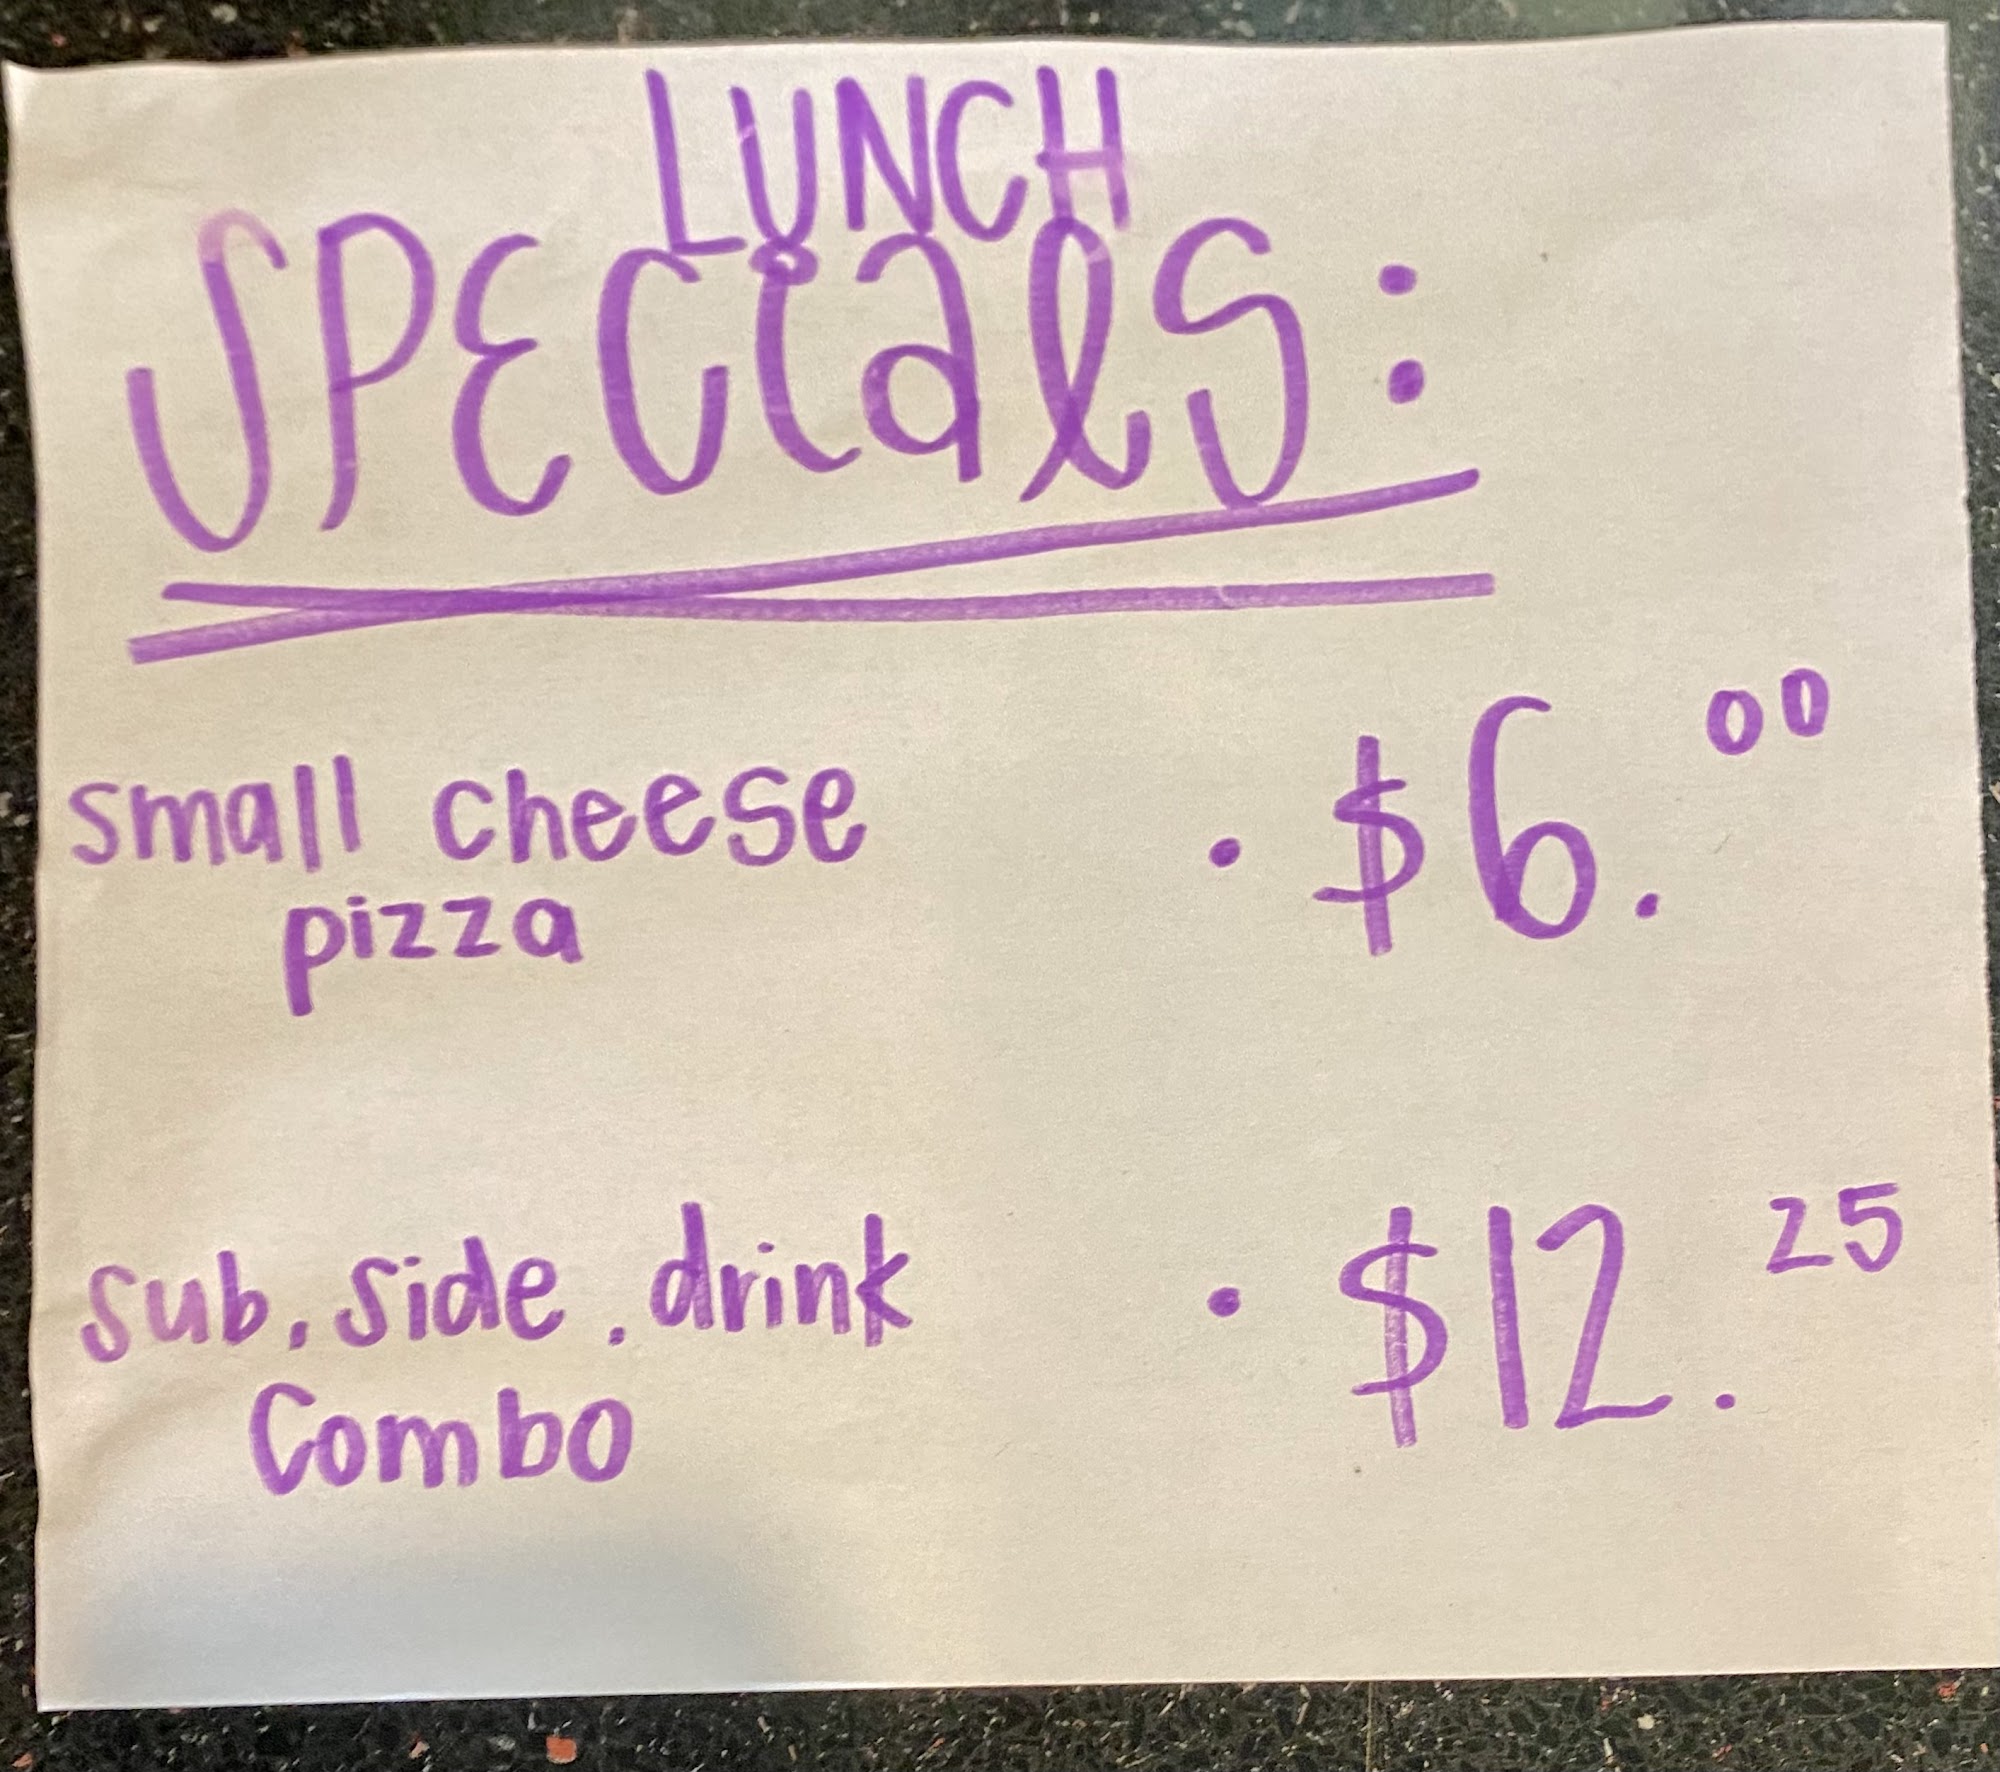 LUNCH
SPECiaLS:
small cheese · $6.00
pizza
sub. side. drink · $12.25
Combo